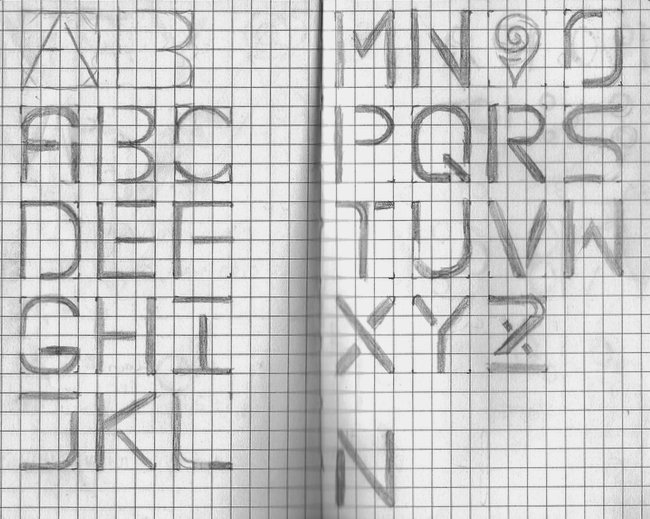 AB
ABC
DEF
GHI
JKL
MN O
PQRS
TUVW
XYZ
N